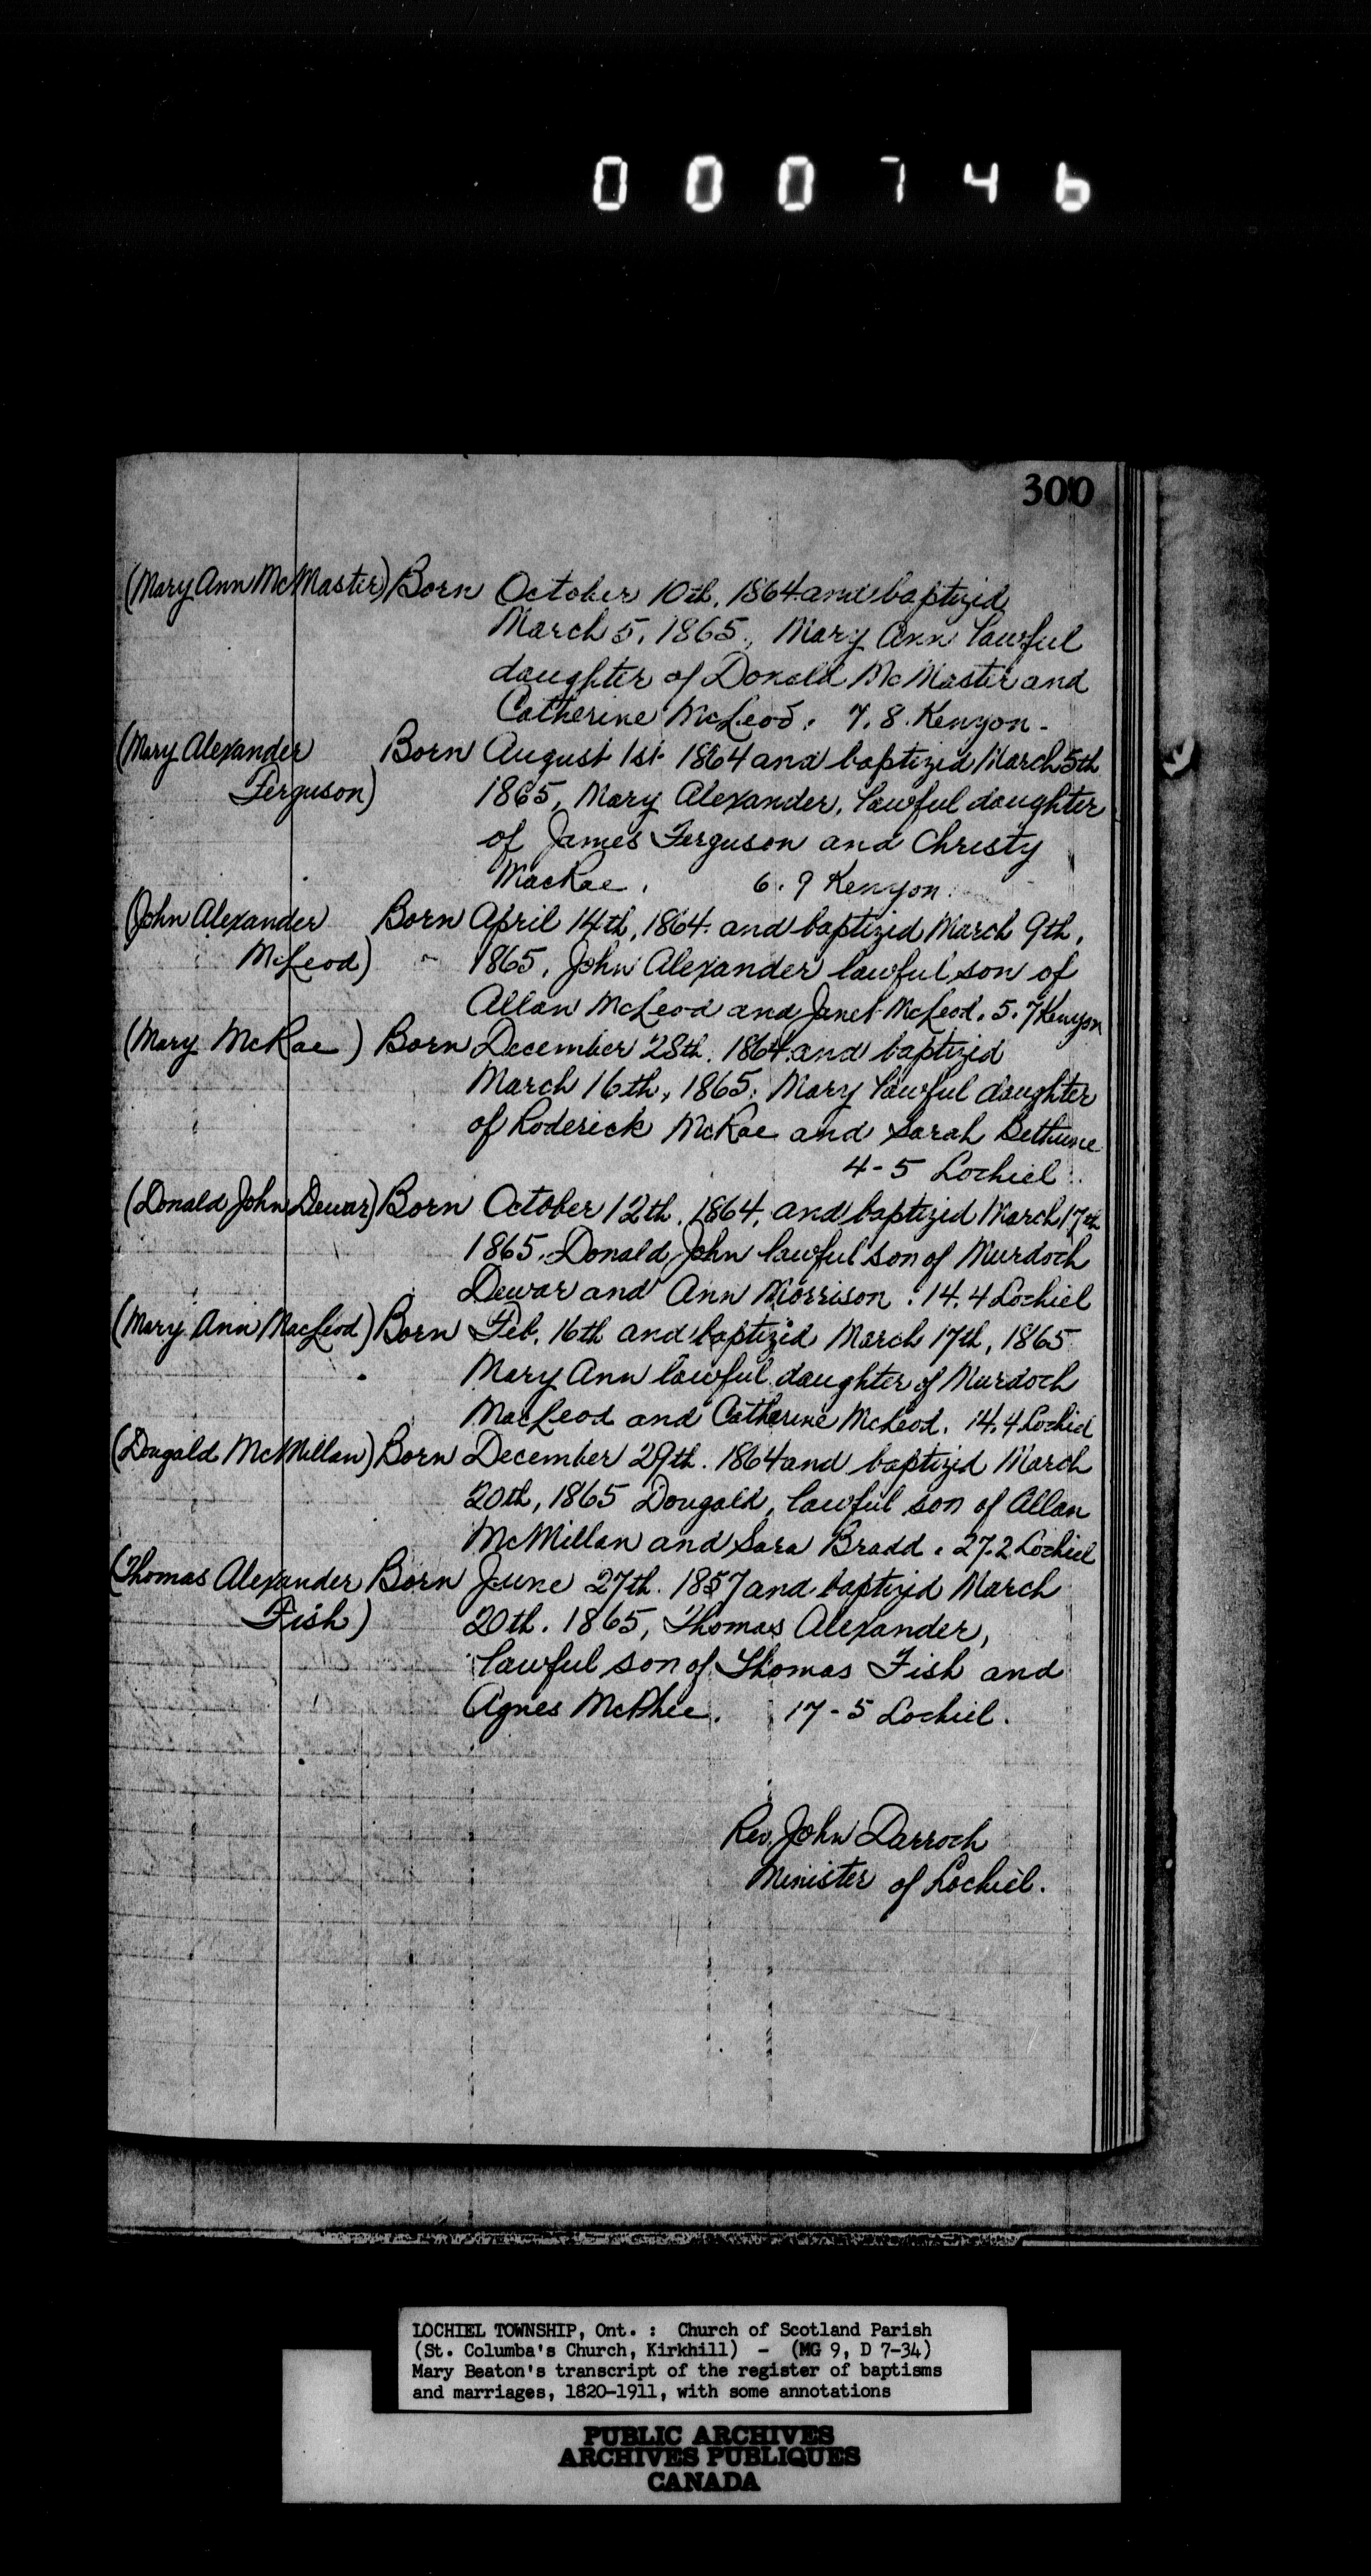 000746
300
(Mary Ann McMaster) Born October 10th, 1864 and baptized
March 5, 1865, Mary Ann lawful
daughter of Donald McMaster and
Catherine McLeod. 7.8. Kenyon.
(Mary Alexander Born August 1st 1864 and baptized March 5th
Ferguson) 1865, Mary Alexander, lawful daughter
of James Ferguson and Christy
MacRae. 6.9 Kenyon.
(John Alexander Born April 14th, 1864 and baptized March 9th,
McLeod) 1865, John Alexander lawful son of
Allan McLeod and Janet McLeod. 5.7 Kenyon
(Mary McRae) Born December 28th. 1864 and baptized
March 16th, 1865. Mary lawful daughter
of Roderick McRae and Sarah Bethune
4-5 Lochiel.
(Donald John Dewar) Born October 12th, 1864, and baptized March 17th
1865. Donald John lawful son of Murdoch
Dewar and Ann Morrison. 14.4 Lochiel
(Mary Ann MacLeod) Born Feb. 16th and baptized March 17th, 1865
Mary Ann lawful daughter of Murdoch
MacLeod and Catherine McLeod. 14.4 Lochiel
(Dougald McMillan) Born December 29th. 1864 and baptized March
20th, 1865 Dougald, lawful son of Allan
McMillan and Sara Bradd. 27.2 Lochiel
(Thomas Alexander Born June 27th. 1857 and baptized March
Fish) 20th. 1865, Thomas Alexander,
lawful son of Thomas Fish and
Agnes McPhee. 17-5 Lochiel.
Rev. John Darroch
Minister of Lochiel.
LOCHIEL TOWNSHIP, Ont. : Church of Scotland Parish
(St. Columba's Church, Kirkhill) - (MG 9, D 7-34)
Mary Beaton's transcript of the register of baptisms
and marriages, 1820-1911, with some annotations
PUBLIC ARCHIVES
ARCHIVES PUBLIQUES
CANADA